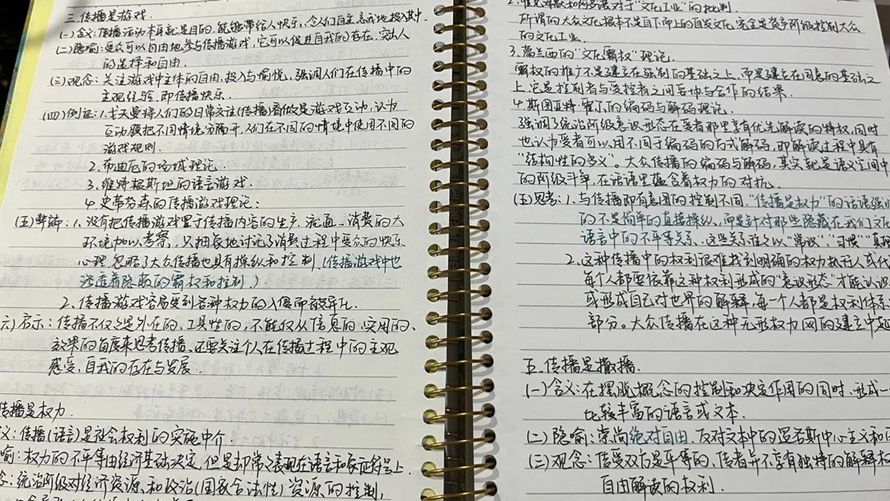 三.传播是游戏.
(一)含义:传播活动本身就是目的,能够带给人快乐,令人们自主、自我地投入其中.
(二)隐喻:受众可以自由地参与传播游戏,它可以促进自我的存在,突出人
的选择和自由.
(三)观念:关注游戏中主体的自由、投入与愉悦,强调人们在传播中的
主观经验,即传播快乐.
(四)例证:1.戈夫曼将人们的日常交往(传播)看做是游戏互动,认为
互动颇把不同情境分隔开,人们在不同的情境中使用不同的
游戏规则.
2.布迪厄的场域理论.
3.维特根斯坦的语言游戏.
4.史蒂芬森的传播游戏理论:
(五)弊端:1.没有把传播游戏置于传播内容的生产、流通、消费的大
环境加以考察,只抽象地讨论了消费过程中受众的快乐
心理,忽略了大众传播也具有操纵和控制.(传播游戏中也
渗透着隐蔽的霸权和控制.)
2.传播游戏容易受到各种权力的入侵而被异化.
六)启示:传播不仅仅是外在的、工具性的,不能仅从信息的、实用的、
效果的角度来思考传播,还要关注个人在传播过程中的主观
感受,自我的存在与发展.
传播是权力.
义:传播(语言)是社会权利的实施中介.
喻:权力的不平等由经济基础决定,但是却常常表现在语言和象征符号上.
念:统治阶级对经济资源、和政治(国家合法性)资源的控制,
对于"文化工业"的批判.
所谓的大众文化根本不是自下而上的自发文化,完全是资本阶级控制大众
的文化工业.
3.葛兰西的"文化霸权"理论.
霸权的推行不是建立在强制的基础之上,而是建立在同意的基础之
上,它是控制者与受控者之间互动与合作的结果.
4.斯图亚特·霍尔的编码与解码理论.
强调了统治阶级意识形态在受者那里享有优先解读的特权,同时
也认为受者可以用不同于编码的方式解码,即解读过程中具有
"结构性的多义".大众传播的编码与解码,其实就是语义空间中
的阶级斗争,在话语里蕴含着权力的对抗.
(五)思考:1.与传播即有意图的控制不同,"传播是权力"的话语强
的不是简单的直接操纵,而是针对那些隐藏在我们文化
语言中的不平等关系,这些关系往往以"常识""习惯""真
2.这种传播中的权利很难找到明确的权力执行人或代
每个人都要依靠这种权利形成的"意识形态"才能认识
或形成自己对世界的解释,每个人都是权利体系
部分.大众传播在这种无形权力网的建立中起
五.传播是撒播.
(一)含义:在摆脱概念的控制和决定作用的同时,形成一
比较丰富的语言或文本.
(二)隐喻:崇尚绝对自由,反对文本中的逻各斯中心主义和
(三)观念:传受双方是平等的,传者并不享有独特的解释权
自由解读的权利.